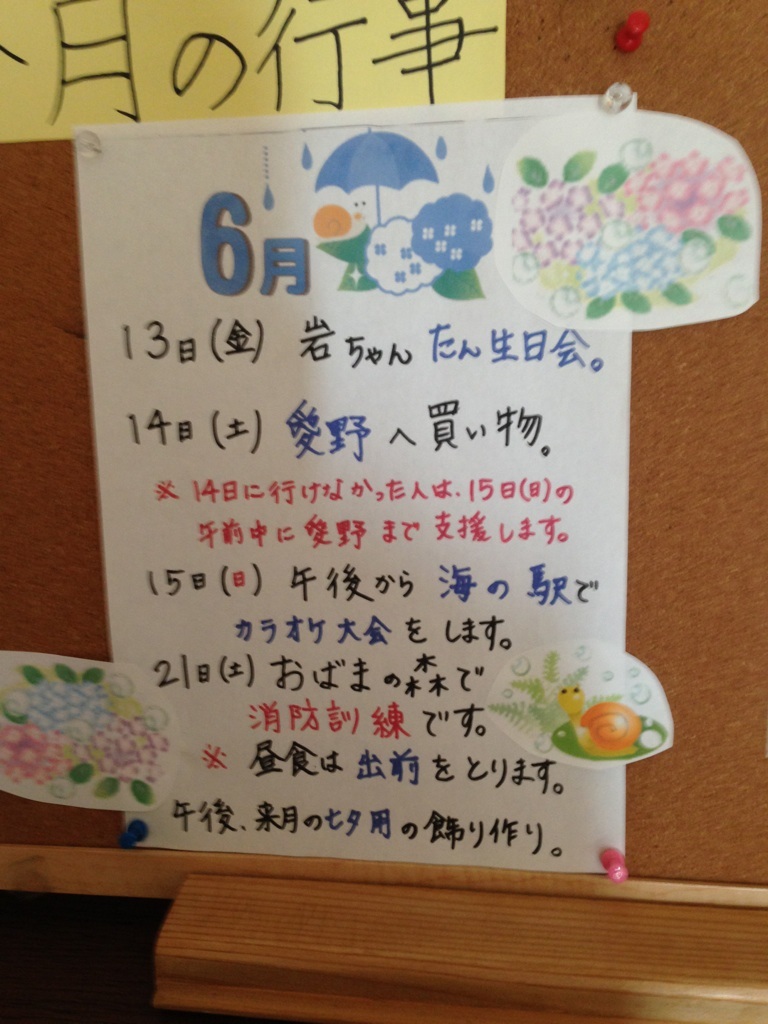 月の行事
6月
13日(金) 岩ちゃん たん生日会。
14日(土) 愛野へ買い物。
※ 14日に行けなかった人は、15日(日)の
午前中に愛野まで支援します。
15日(日) 午後から 海の駅で
カラオケ大会をします。
21日(土) おばまの森で
消防訓練です。
※ 昼食は出前をとります。
午後、来月の七夕用の飾り作り。